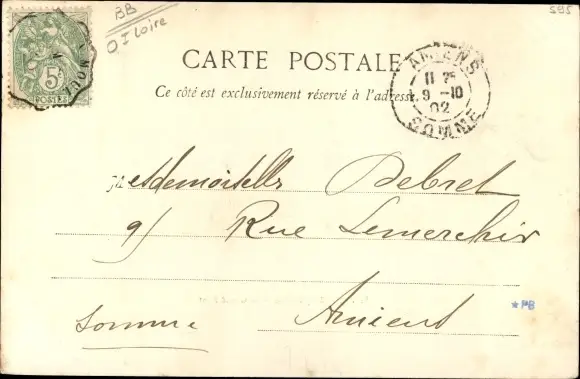 BB
OI Loire
595
5
POSTES
CARTE POSTALE
Ce côté est exclusivement réservé à l'adresse.
AMIENS
11 25
9 -10
02
SOMME
Mesdemoiselles Debret
9/ Rue Lemerchier
Amiens
Somme
*PB